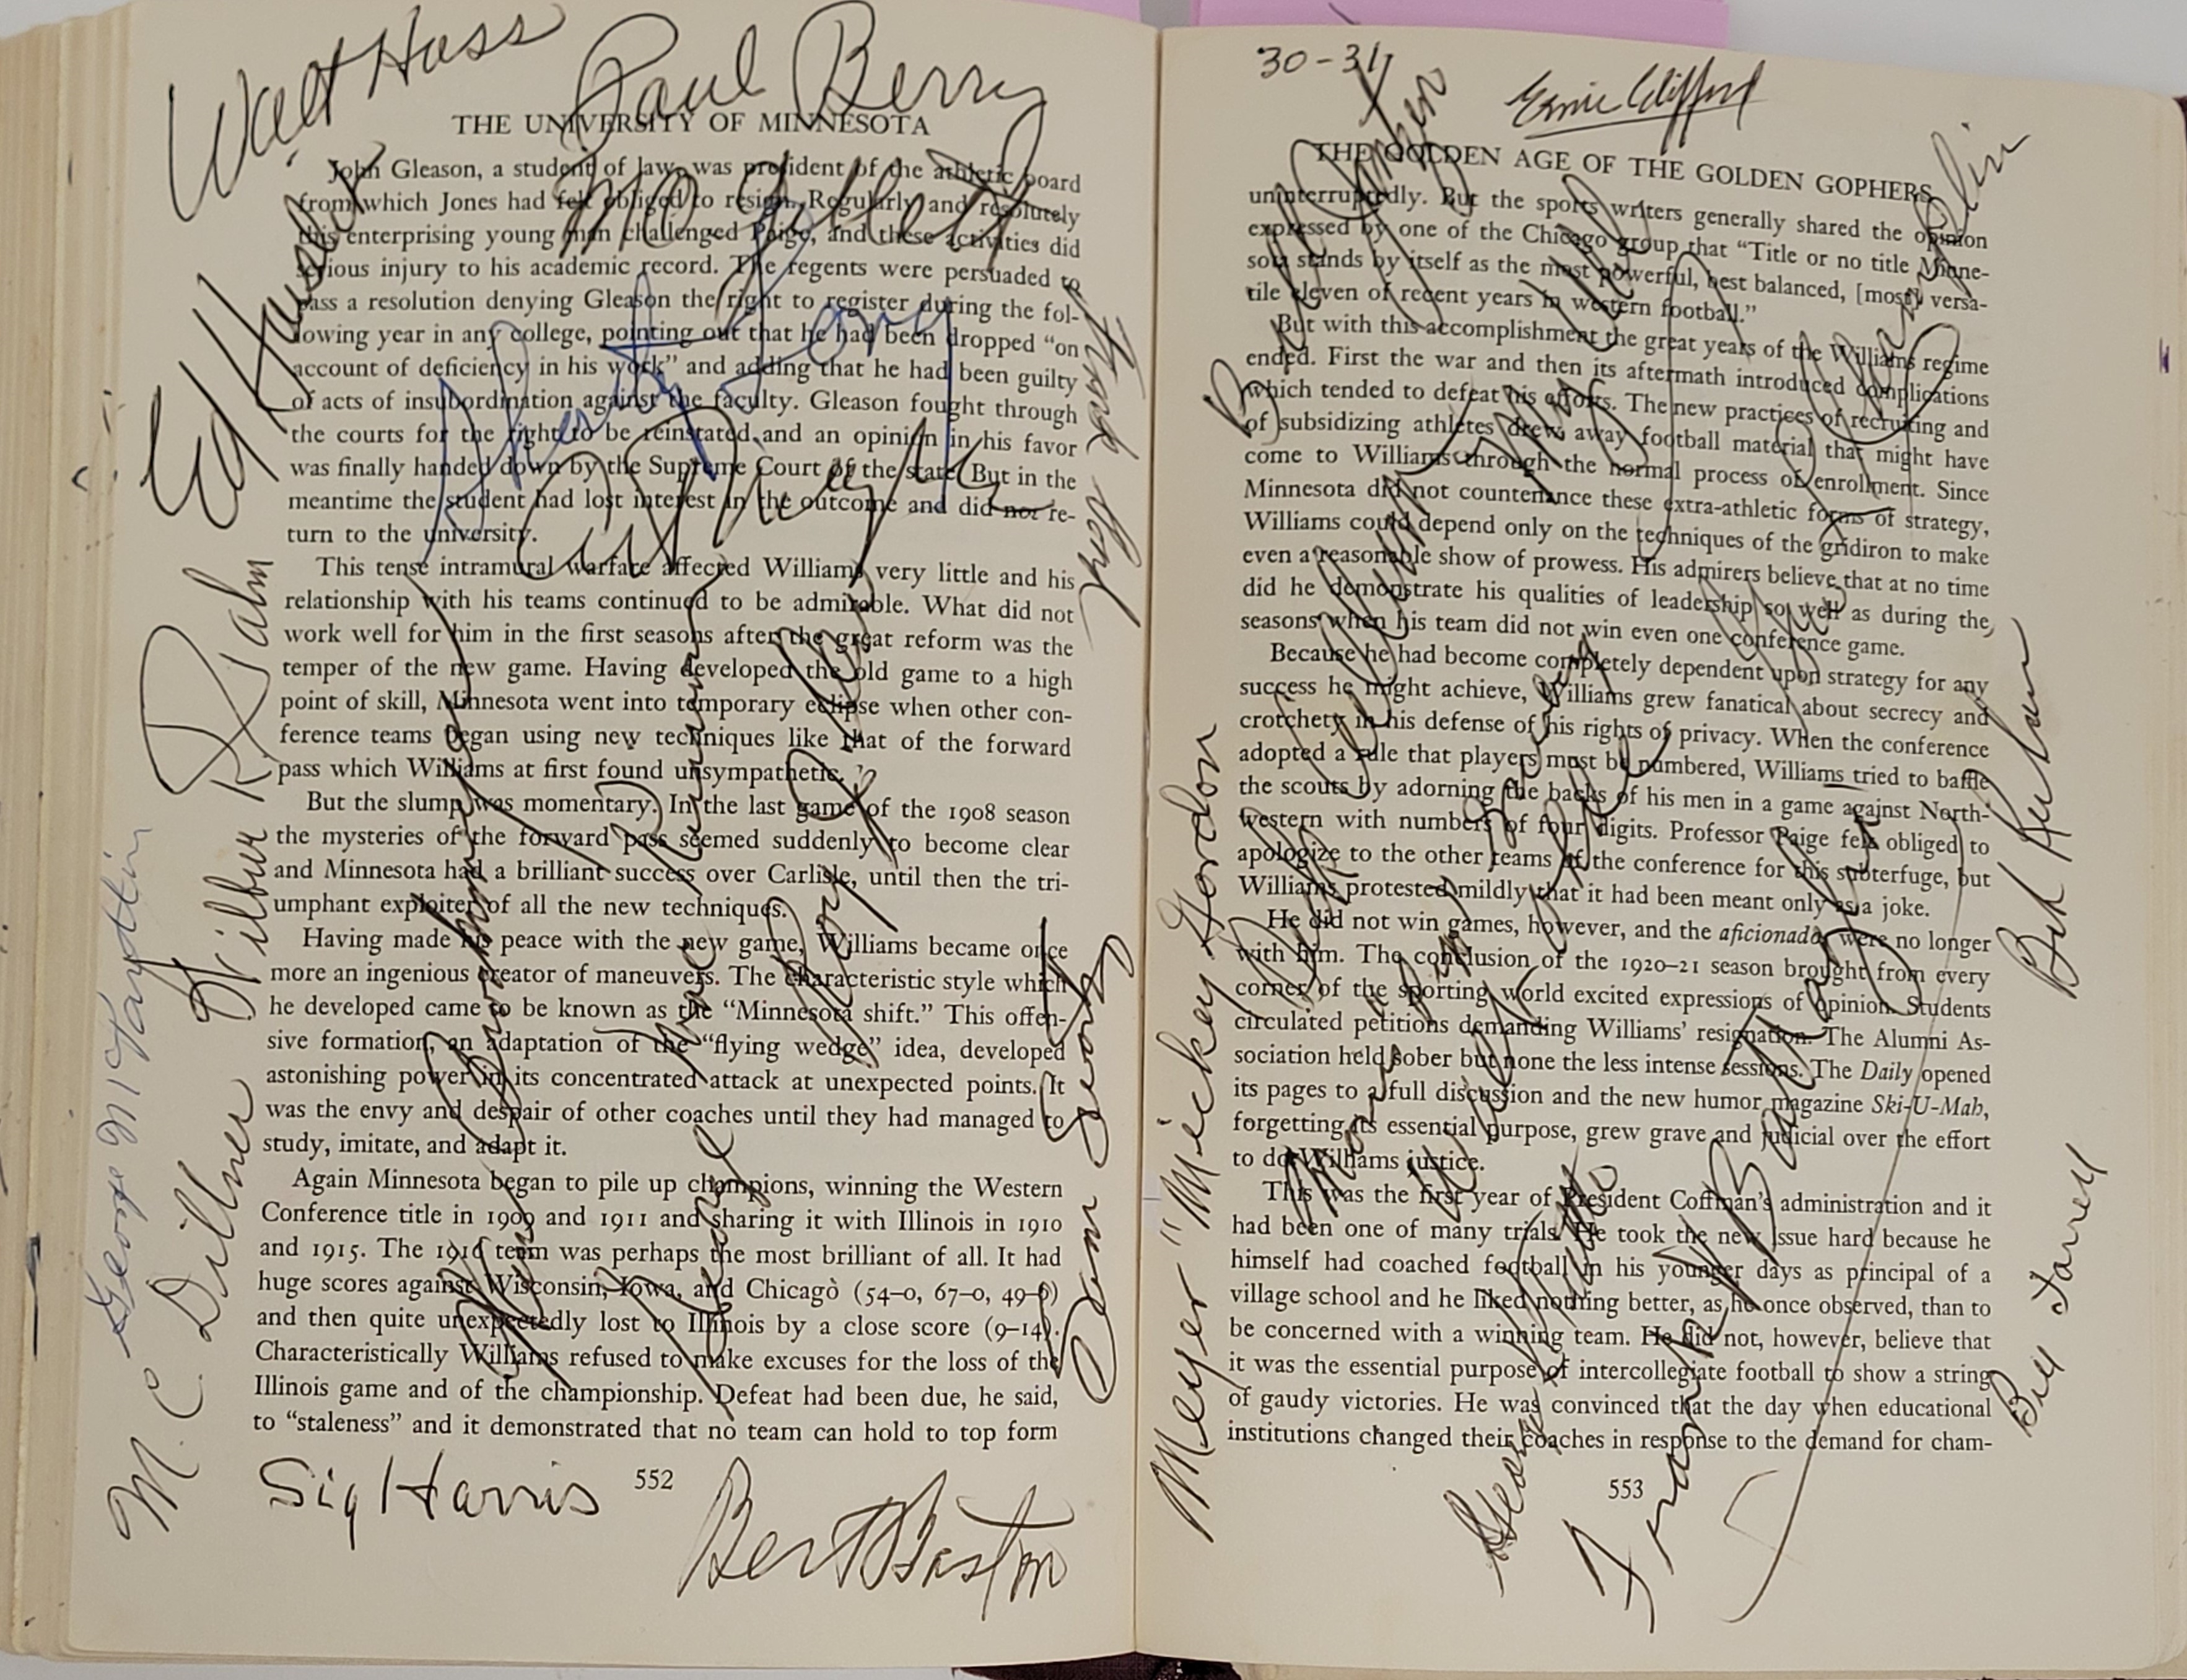 Walt Hass
Paul Berry
THE UNIVERSITY OF MINNESOTA
John Gleason, a student of law, was president of the athletic board
from which Jones had felt obliged to resign. Regularly and resolutely
this enterprising young man challenged Paige, and these activities did
serious injury to his academic record. The regents were persuaded to
pass a resolution denying Gleason the right to register during the fol-
lowing year in any college, pointing out that he had been dropped “on
account of deficiency in his work” and adding that he had been guilty
of acts of insubordination against the faculty. Gleason fought through
the courts for the right to be reinstated and an opinion in his favor
was finally handed down by the Supreme Court of the state. But in the
meantime the student had lost interest in the outcome and did not re-
turn to the university.
This tense intramural warfare affected Williams very little and his
relationship with his teams continued to be admirable. What did not
work well for him in the first seasons after the great reform was the
temper of the new game. Having developed the old game to a high
point of skill, Minnesota went into temporary eclipse when other con-
ference teams began using new techniques like that of the forward
pass which Williams at first found unsympathetic.
But the slump was momentary. In the last game of the 1908 season
the mysteries of the forward pass seemed suddenly to become clear
and Minnesota had a brilliant success over Carlisle, until then the tri-
umphant exploiter of all the new techniques.
Having made his peace with the new game, Williams became once
more an ingenious creator of maneuvers. The characteristic style which
he developed came to be known as the “Minnesota shift.” This offen-
sive formation, an adaptation of the “flying wedge” idea, developed
astonishing power in its concentrated attack at unexpected points. It
was the envy and despair of other coaches until they had managed to
study, imitate, and adapt it.
Again Minnesota began to pile up champions, winning the Western
Conference title in 1909 and 1911 and sharing it with Illinois in 1910
and 1915. The 1916 team was perhaps the most brilliant of all. It had
huge scores against Wisconsin, Iowa, and Chicago (54–0, 67–0, 49–0)
and then quite unexpectedly lost to Illinois by a close score (9–14).
Characteristically Williams refused to make excuses for the loss of the
Illinois game and of the championship. Defeat had been due, he said,
to “staleness” and it demonstrated that no team can hold to top form
552
Sig Harris
Bert Baston
M. C. Dillner
Wilbur
Ed
30-31
Ernie Clifford
THE GOLDEN AGE OF THE GOLDEN GOPHERS
uninterruptedly. But the sports writers generally shared the opinion
expressed by one of the Chicago group that “Title or no title Minne-
sota stands by itself as the most powerful, best balanced, [most] versa-
tile eleven of recent years in western football.”
But with this accomplishment the great years of the Williams regime
ended. First the war and then its aftermath introduced complications
which tended to defeat his efforts. The new practices of recruiting and
of subsidizing athletes drew away football material that might have
come to Williams through the normal process of enrollment. Since
Minnesota did not countenance these extra-athletic forms of strategy,
Williams could depend only on the techniques of the gridiron to make
even a reasonable show of prowess. His admirers believe that at no time
did he demonstrate his qualities of leadership so well as during the
seasons when his team did not win even one conference game.
Because he had become completely dependent upon strategy for any
success he might achieve, Williams grew fanatical about secrecy and
crotchety in his defense of his rights of privacy. When the conference
adopted a rule that players must be numbered, Williams tried to baffle
the scouts by adorning the backs of his men in a game against North-
western with numbers of four digits. Professor Paige felt obliged to
apologize to the other teams of the conference for this subterfuge, but
Williams protested mildly that it had been meant only as a joke.
He did not win games, however, and the aficionados were no longer
with him. The conclusion of the 1920–21 season brought from every
corner of the sporting world excited expressions of opinion. Students
circulated petitions demanding Williams’ resignation. The Alumni As-
sociation held sober but none the less intense sessions. The Daily opened
its pages to a full discussion and the new humor magazine Ski-U-Mah,
forgetting its essential purpose, grew grave and judicial over the effort
to do Williams justice.
This was the first year of President Coffman’s administration and it
had been one of many trials. He took the new issue hard because he
himself had coached football in his younger days as principal of a
village school and he liked nothing better, as he once observed, than to
be concerned with a winning team. He did not, however, believe that
it was the essential purpose of intercollegiate football to show a string
of gaudy victories. He was convinced that the day when educational
institutions changed their coaches in response to the demand for cham-
553
Meyer "Mickey" Gordon
George
Frank
Bill Farrell